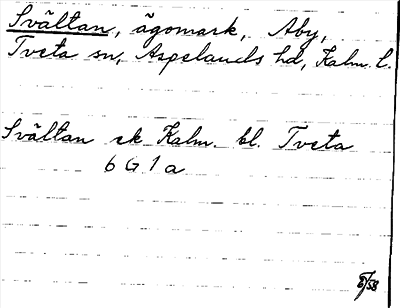 Svältan, ägomark, Aby,
Tveta sn, Aspelands hd, Kalm. l.
Svältan ek Kalm. bl. Tveta
6 G 1 a